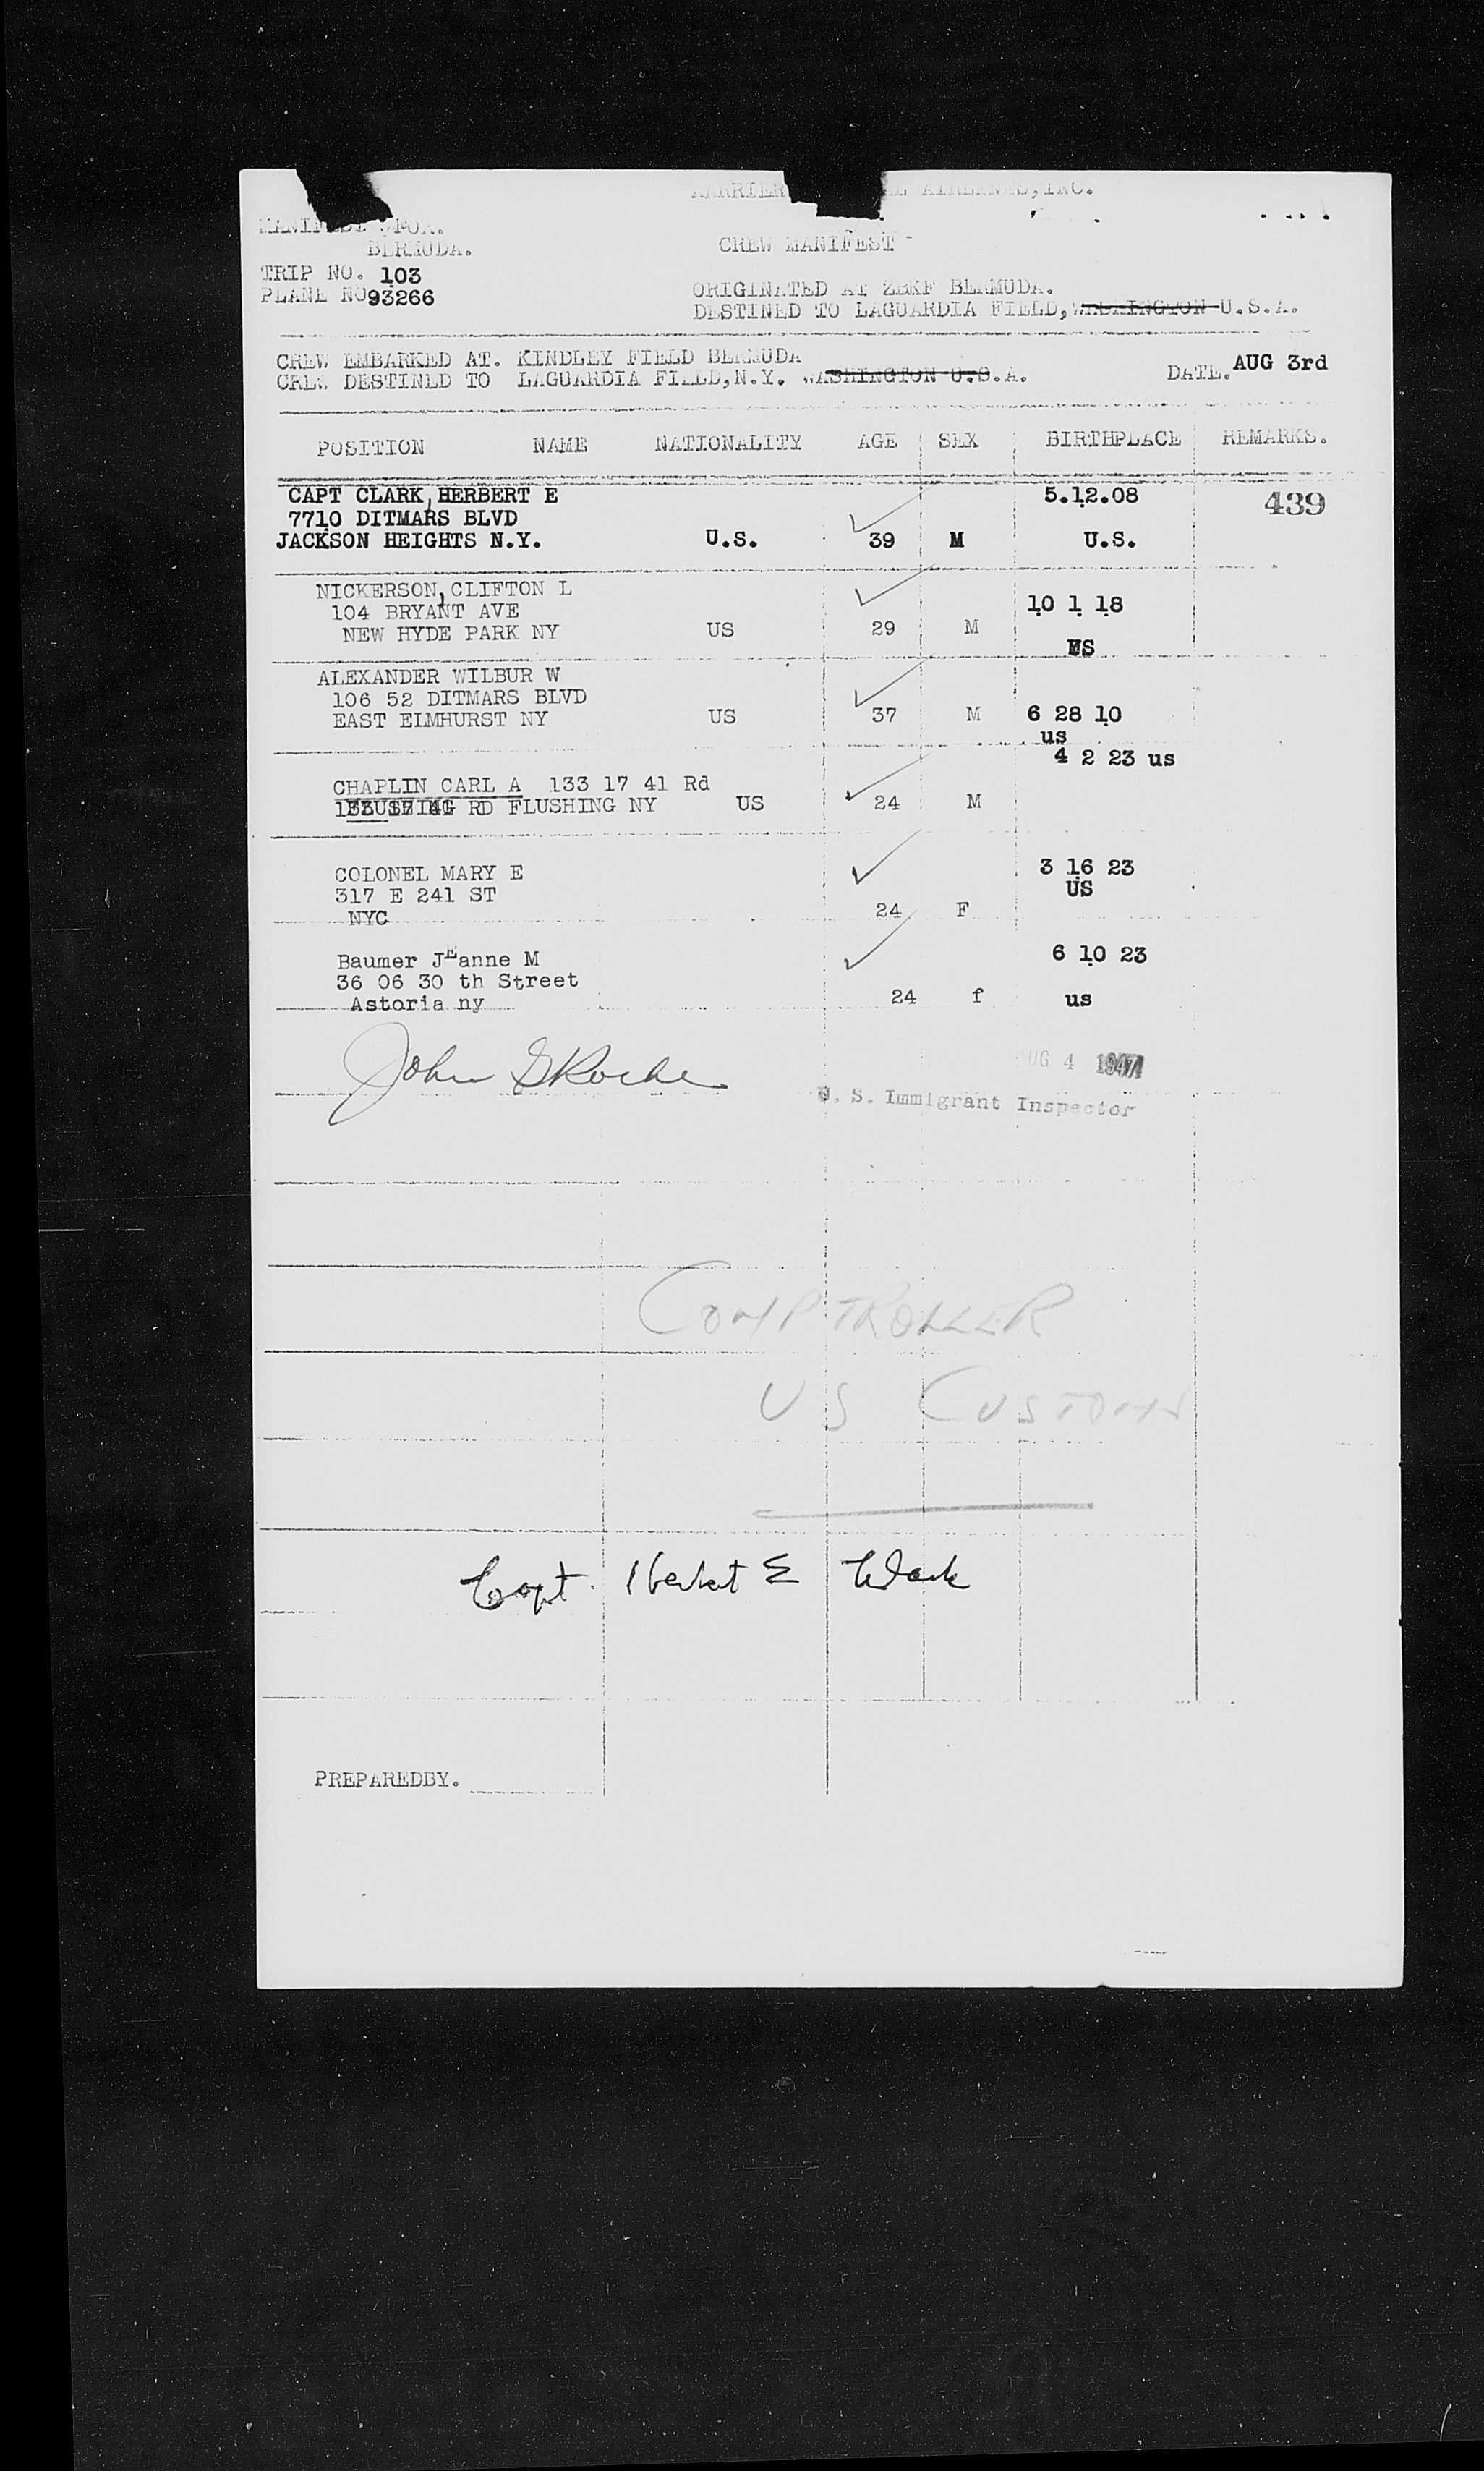 AIRLINES, INC.
BERMUDA.
CREW MANIFEST
TRIP NO. 103
PLANE NO 93266
ORIGINATED AT ZBKF BERMUDA.
DESTINED TO LAGUARDIA FIELD, WASHINGTON U.S.A.
CREW EMBARKED AT. KINDLEY FIELD BERMUDA
CREW DESTINED TO LAGUARDIA FIELD, N.Y. WASHINGTON U.S.A.
DATE. AUG 3rd
POSITION NAME NATIONALITY AGE SEX BIRTHPLACE REMARKS.
CAPT CLARK, HERBERT E 5.12.08 439
7710 DITMARS BLVD
JACKSON HEIGHTS N.Y. U.S. 39 M U.S.
NICKERSON, CLIFTON L
104 BRYANT AVE 10 1 18
NEW HYDE PARK NY US 29 M
US
ALEXANDER WILBUR W
106 52 DITMARS BLVD
EAST ELMHURST NY US 37 M 6 28 10
us
4 2 23 us
CHAPLIN CARL A 133 17 41 Rd
RD FLUSHING NY US 24 M
COLONEL MARY E 3 16 23
317 E 241 ST US
NYC 24 F
Baumer JEanne M 6 10 23
36 06 30 th Street
Astoria ny 24 f us
John G Roche
AUG 4 1947
U. S. Immigrant Inspector
COMPTROLLER
US CUSTOMS
Capt. Herbert E Clark
PREPAREDBY.